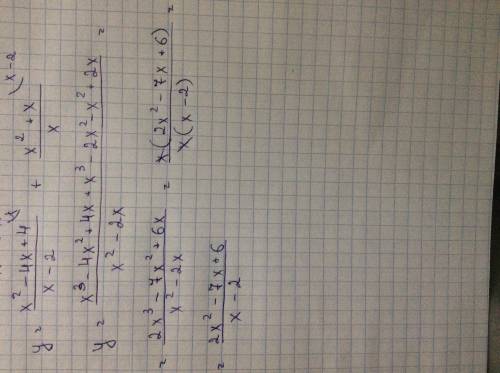 y = \frac{x² - 4x + 4}{x - 2} ⁽ˣ + \frac{x² + x}{x} ⁽ˣ⁻²
y = \frac{x³ - 4x² + 4x + x³ - 2x² - x² + 2x}{x² - 2x} =
= \frac{2x³ - 7x² + 6x}{x² - 2x} = \frac{x(2x² - 7x + 6)}{x(x - 2)} =
= \frac{2x² - 7x + 6}{x - 2}